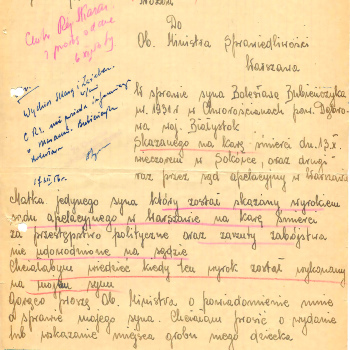 Do
Ob. Ministra Sprawiedliwości
Warszawa
W sprawie syna Bolesława Bubieńczyka
ur. 1931 r w Chworościanach pow. Dąbro-
wa woj. Białystok
Skazanego na karę śmierci dn. 13.X
wieczorem w Sokółce, oraz drugi
raz przez sąd apelacyjny w Warszawie
Matka jedynego syna który został skazany wyrokiem
sądu apelacyjnego w Warszawie na karę śmierci
za przestępstwo polityczne oraz zarzuty zabójstwa
nie udowodnione na sądzie
Chciałabym wiedzieć kiedy ten wyrok został wykonany
na mojem synu
Gorąco proszę Ob. Ministra o powiadomienie mnie
o sprawie mojego syna. Chciałam prosić o wydanie
lub wskazanie miejsca grobu mego dziecka
z prośbą o dane
Wydział
C.R.S. nie posiada informacji
o skazanym Bubieńczyk
Bolesław